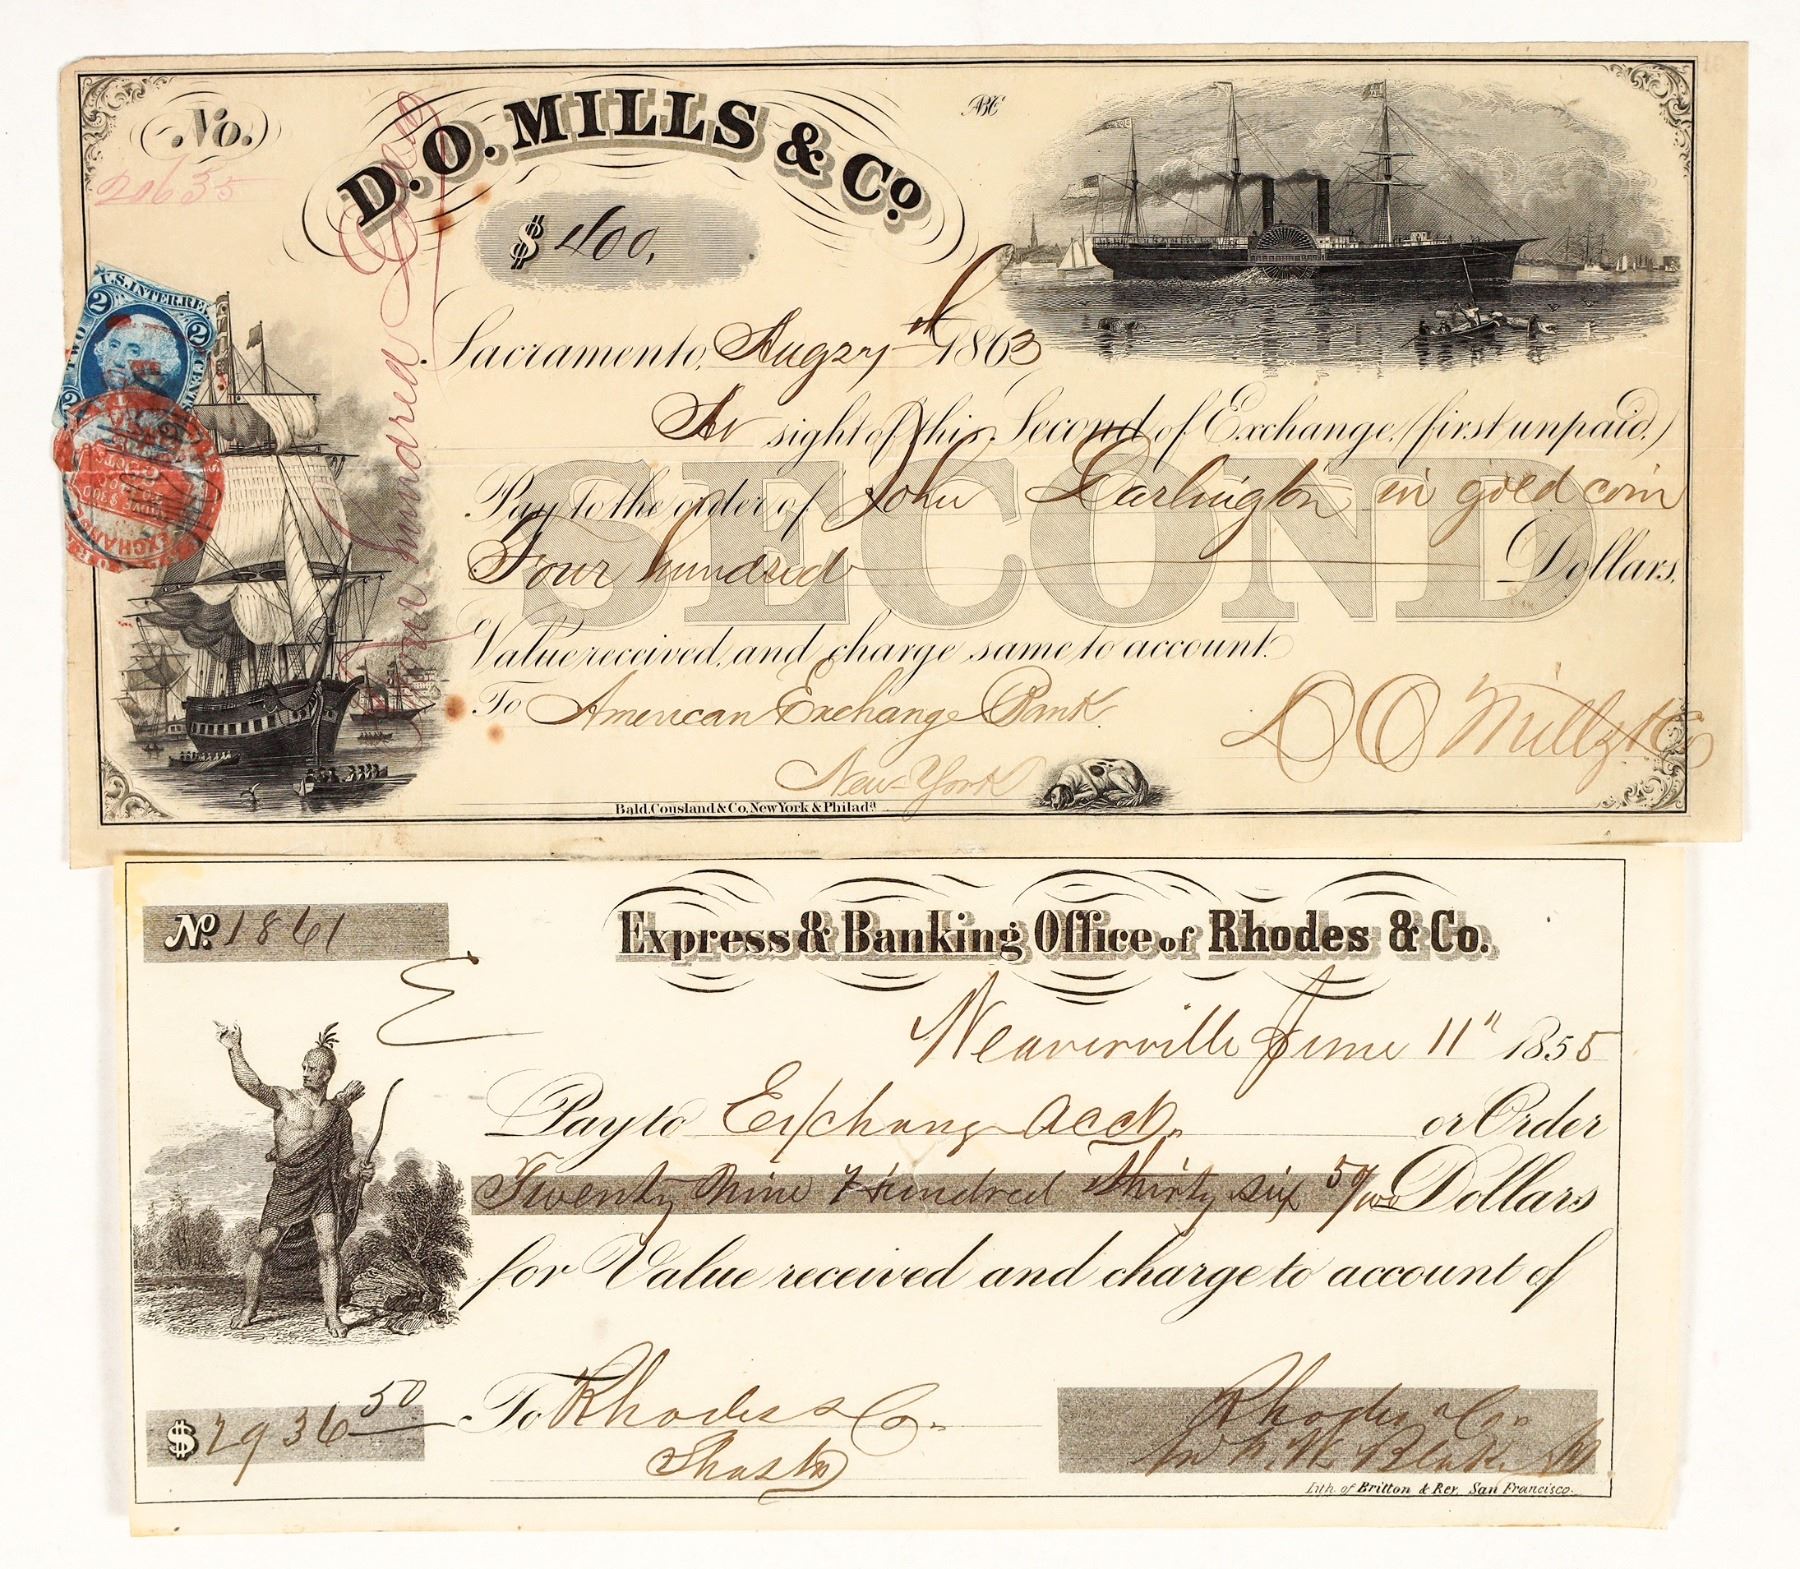 No.
20635
D. O. MILLS & Co.
$ 400,
Four hundred
U.S. INTER. REV.
2 2
TWO CENTS
Sacramento, Aug 27th 1863
At sight of this Second of Exchange (first unpaid)
SECOND
Pay to the order of John Darlington in gold coin
Four hundred Dollars,
Value received, and charge same to account.
To American Exchange Bank
New-York
D O Mills & Co
Bald, Cousland & Co, New York & Philada.
No. 1861
Express & Banking Office of Rhodes & Co.
Weaverville June 11" 1855
Pay to Exchange acct. or Order
Twenty Nine Hundred Thirty six 50/100 Dollars
for Value received and charge to account of
$ 2936 50
To Rhodes & Co.
Shasta
Rhodes & Co
Lith. of Britton & Rey, San Francisco.